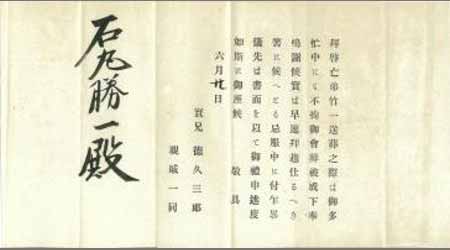 拜啓亡弟竹一送葬之際は御多
忙中にて不拘御會葬被成下奉
鳴謝候實は早速拜趨仕るへき
筈に候へども忌服中に付乍畧
儀先は書面を以て御禮申述度
如斯に御座候 敬具
六月廿日
實兄 德久三郎
親戚一同
石丸勝一殿